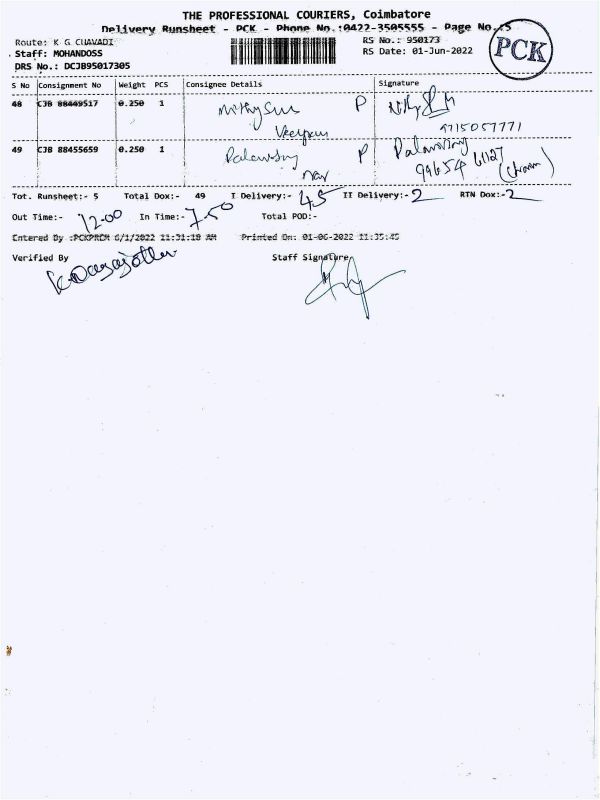 THE PROFESSIONAL COURIERS, Coimbatore
Delivery Runsheet - PCK - Phone No.:0422-3505555 - Page No.:5
Route: K G CHAVADI
Staff: MOHANDOSS
DRS No.: DCJB95017305
RS No.: 950173
RS Date: 01-Jun-2022
PCK
S No Consignment No Weight PCS Consignee Details Signature
48 CJB 88449517 0.250 1 P
9715057771
49 CJB 88455659 0.250 1 P
99654 61127
Tot. Runsheet:- 5 Total Dox:- 49 I Delivery:- 45 II Delivery:- 2 RTN Dox:- 2
Out Time:- 12-00 In Time:- 7-50 Total POD:-
Entered By :PCKPRCM 6/1/2022 11:31:18 AM Printed On: 01-06-2022 11:35:45
Verified By Staff Signature